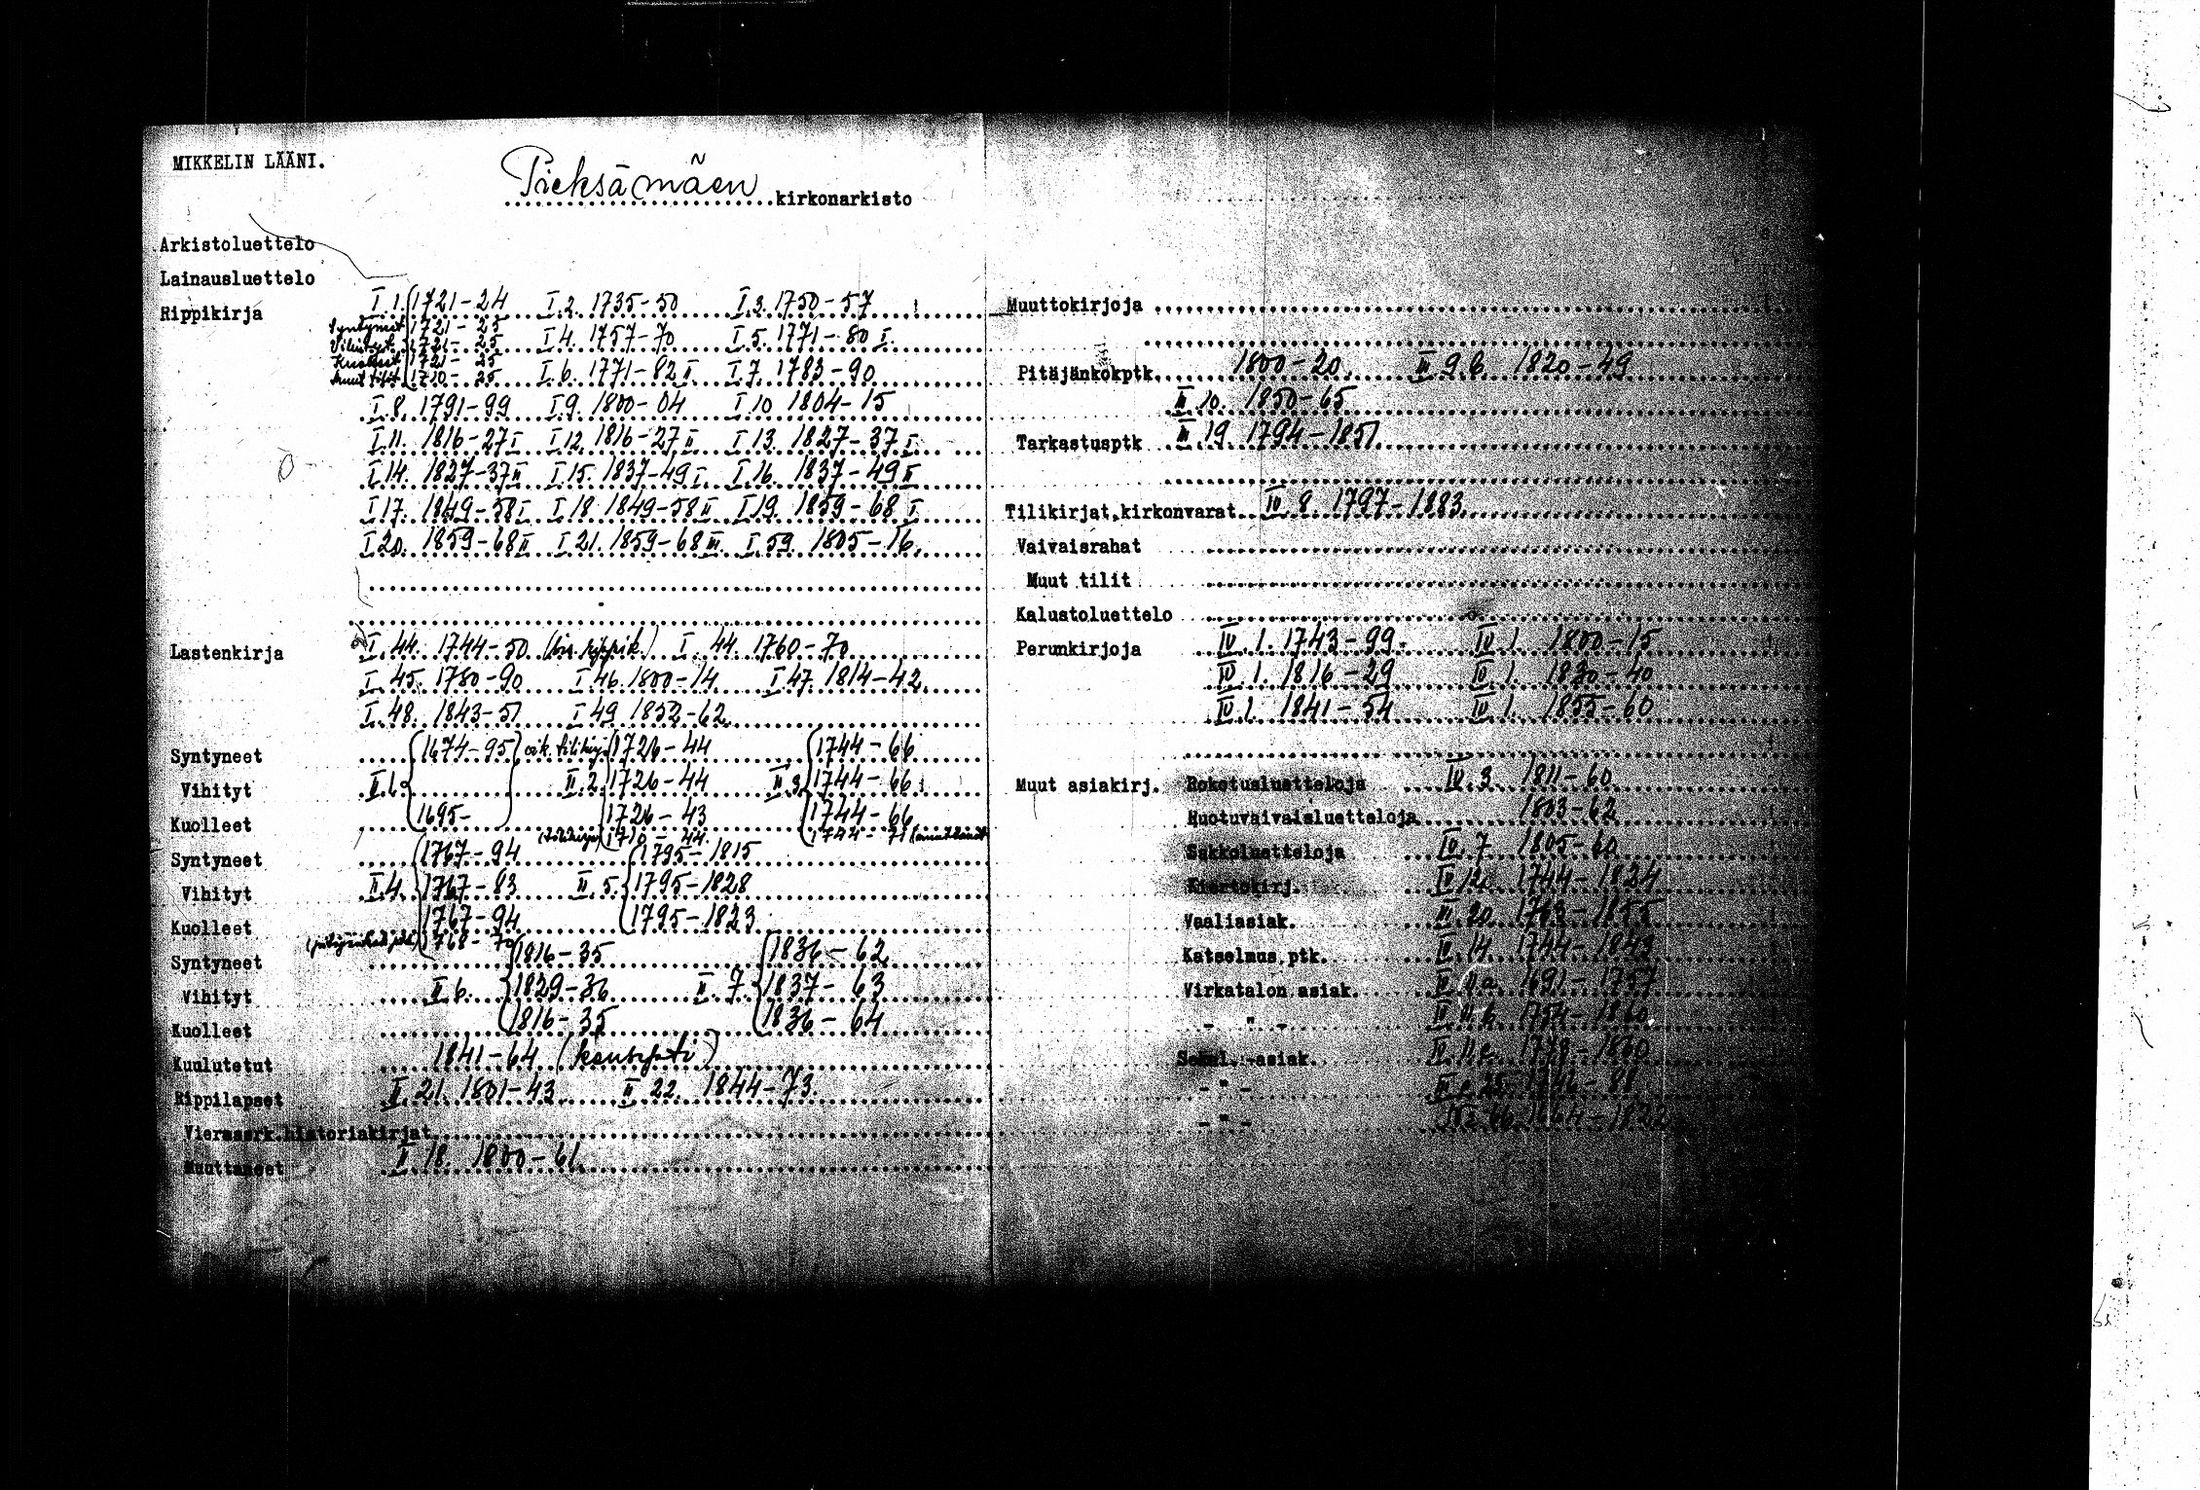 MIKKELIN LÄÄNI.
Pieksämäen kirkonarkisto
Arkistoluettelo
Lainausluettelo
Rippikirja I.1. 1721-24 I.2. 1735-50 I.3. 1750-57
Syntyneet 1721-25
1721-25 I.4. 1757-70 I.5. 1771-80 I.
Kuolleet 1721-25
Muut tilit 1710-25 I.6. 1771-82 II I.7. 1783-90
I.8. 1791-99 I.9. 1800-04 I.10 1804-15
I.11. 1816-27 I I.12. 1816-27 II I.13. 1827-37 I.
I.14. 1827-37 II I.15. 1837-49 I. I.16. 1837-49 II
I.17. 1849-58 I I.18 1849-58 II I.19. 1859-68 I
I.20. 1859-68 II I.21. 1859-68 III I.59. 1805-16.
Lastenkirja I.44. 1744-50 I.44. 1760-70
I.45. 1780-90 I.46. 1800-14 I.47. 1814-42
I.48. 1843-51 I.49. 1852-62
Syntyneet 1674-95 1726-44 1744-66
Vihityt II.1. II.2. 1726-44 II.3. 1744-66
Kuolleet 1695- 1726-43 1744-66
1710-44. 1744-71
Syntyneet 1767-94 1795-1815
Vihityt II.4. 1767-83 II.5. 1795-1828
Kuolleet 1767-94 1795-1823
1768-70
Syntyneet 1816-35 1836-62
Vihityt II.6. 1829-36 II.7. 1837-63
Kuolleet 1816-35 1836-64
Kuulutetut 1841-64 (konsepti)
Rippilapset II.21. 1801-43 II 22. 1844-73.
Vieraserk.historiakirjat
Muuttaneet II.18. 1800-61.
Muuttokirjoja
Pitäjänkokptk. 1800-20. III.9.b. 1820-49
II.10. 1850-65
Tarkastusptk III.19. 1794-1851
Tilikirjat,kirkonvarat. IV.8. 1797-1883
Vaivaisrahat
Muut tilit
Kalustoluettelo
Perunkirjoja IV.1. 1743-99. IV.1. 1800-15
IV.1. 1816-29 IV.1. 1830-40
IV.1. 1841-54 IV.1. 1855-60
Muut asiakirj. Rokotusluetteloja IV.3. 1811-60
Ruotuvaivaisluetteloja 1803-62
Sakkoluetteloja IV.7. 1805-60
Kiertokirj. 1744-1824
Vaaliasiak.
Katselmus ptk. 1744-1843
Virkatalon asiak. 1691-1757
- " -
-asiak.
- " -
- " -